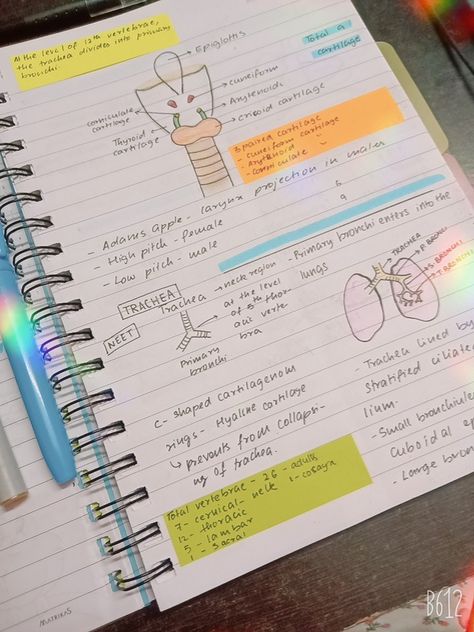 At the level of 12th vertebrae,
the trachea divides into primary
bronchi
Epiglotis
Total 9
cartilage
cuneiform
Arytenoids
cricoid cartilage
corniculate
cartilage
Thyroid
cartilage
3 paired cartilage
- cuneiform cartilage
- Arytenoid
- corniculate
- Adams apple - larynx projection in male
- High pitch - female
- Low pitch - male
6
9
TRACHEA
NEET
Trachea
neck region
at the level
of 5th thor
acic verte
bra
Primary
bronchi
- Primary bronchi enters into the
lungs
TRACHEA
P. BRONCHI
S. BRONCHI
T. BRONCHI
c- shaped cartilagenom
rings - Hyaline cartilage
prevents from collaps-
ing of trachea.
Trachea lined by
stratified ciliated
lium.
- Small bronchiole
Cuboidal ep
- Large bron
Total vertebrae - 26 - adults
7 - cervical - neck
12 - thoracic
5 - lambar
1 - sacral
B612